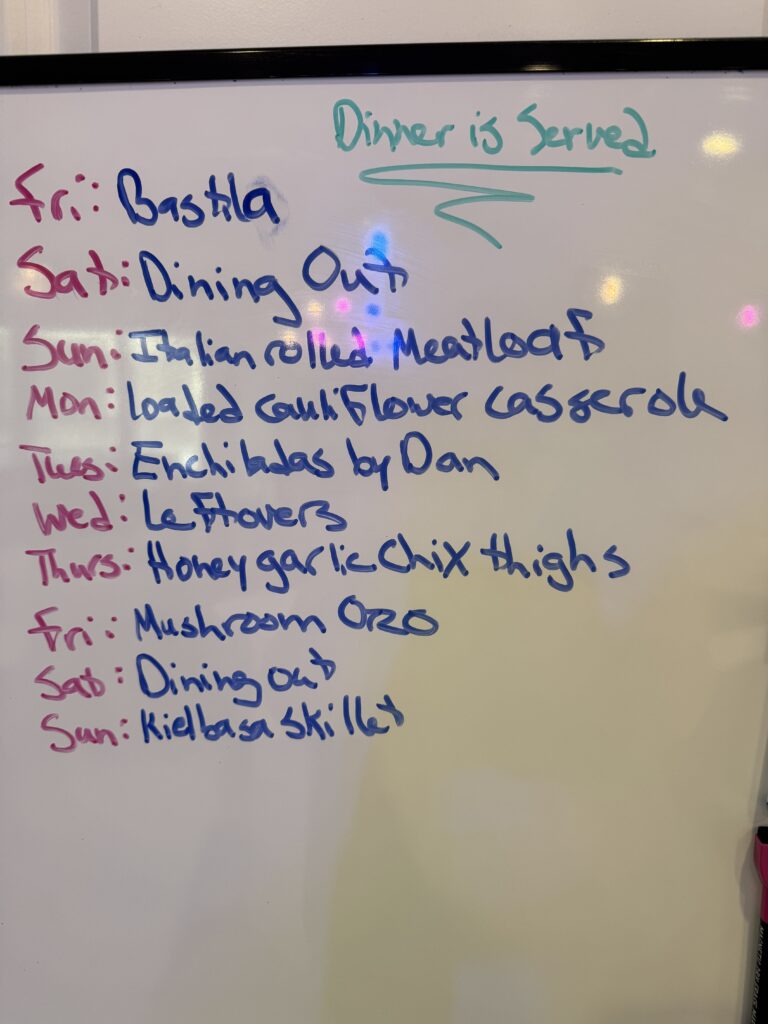 Dinner is Served
Fri: Bastila
Sat: Dining Out
Sun: Italian rolled Meatloaf
Mon: Loaded cauliflower casserole
Tues: Enchiladas by Dan
Wed: Leftovers
Thurs: Honey garlic Chix thighs
Fri: Mushroom Orzo
Sat: Dining out
Sun: Kielbasa skillet